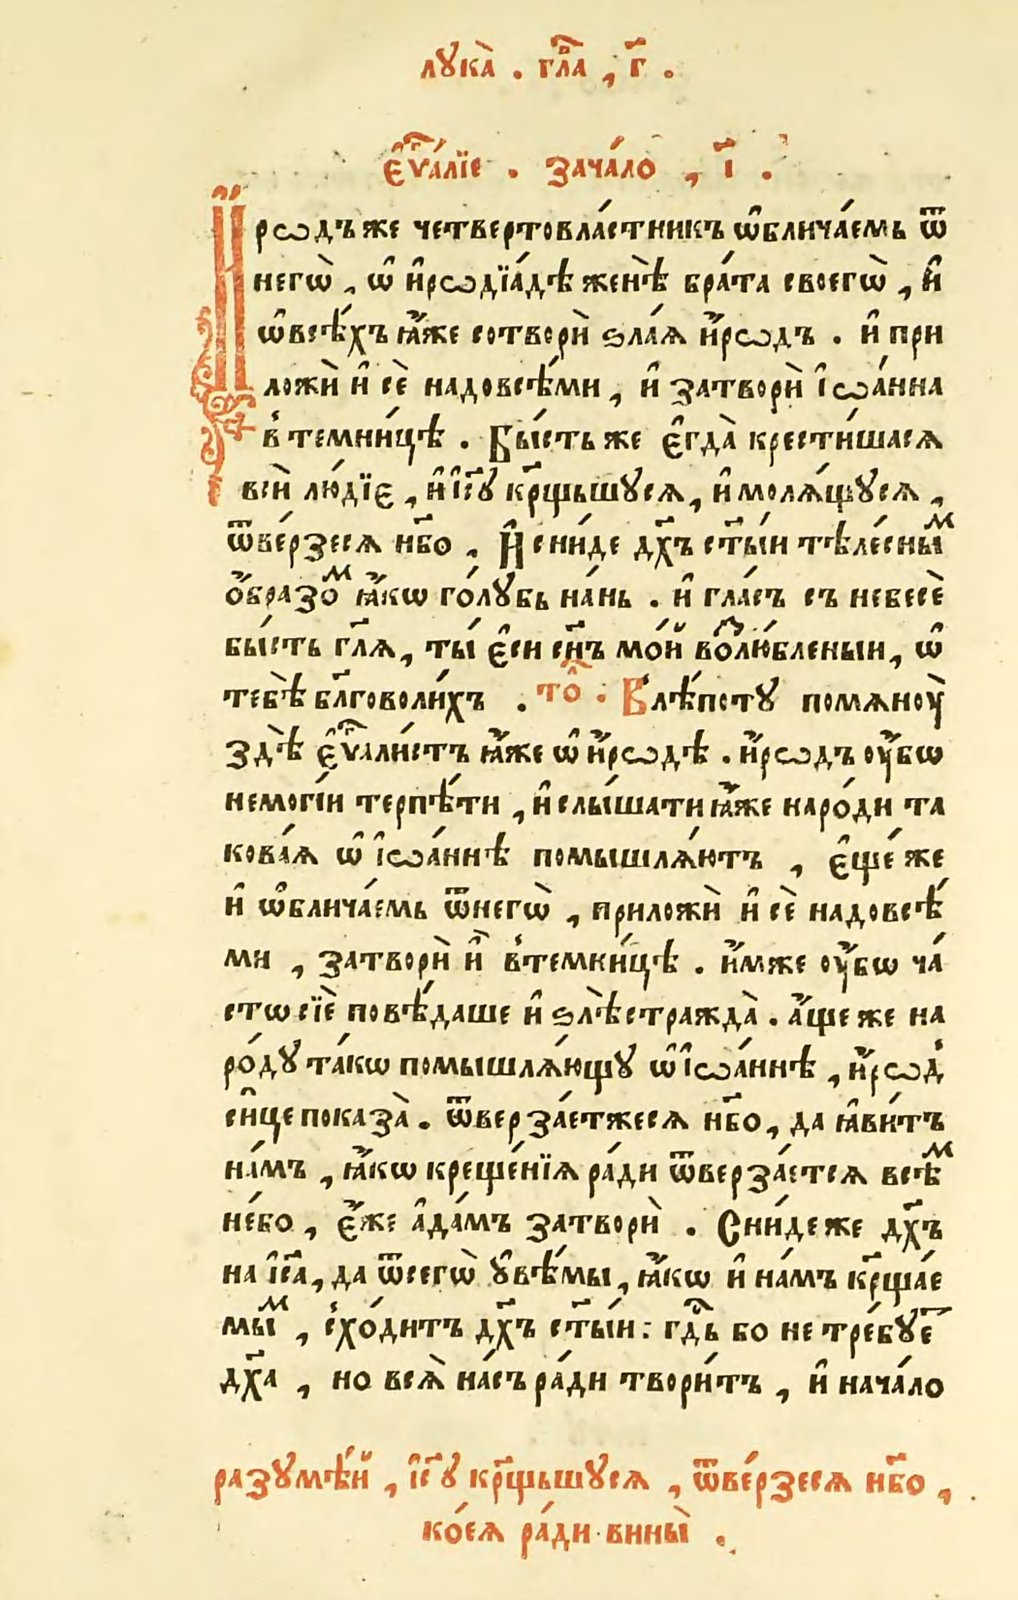 лꙋка̀ . гл҃а , г҃ .
є҆ѵⷢ҇а́лїе . зача́ло , і҃ .
И҆́рѡдъ же четвертовла́стникъ ѡ҆блича́емь ѿ
негѡ̀ , ѡ҆ и҆рѡдїа́дѣ женѣ̀ бра́та своегѡ̀ , и҆
ѡ҆все́хъ ꙗ҆́же сотворѝ ѕла́ѧ и҆́рѡдъ . и҆ при
ложѝ и҆ сѐ надовсѣ́ми , и҆ затворѝ і҆ѡа́нна
в̾ темни́цѣ . Бы́сть же є҆гда̀ крести́шасѧ
всѝ лю́дїє , и҆ і҆с҃ꙋ кр҃щьшꙋсѧ , и҆ молѧ́щꙋсѧ ,
ѿве́рзесѧ нб҃о . И҆ сни́де дх҃ъ ст҃ы́и тѣле́сныⷨ
ѻ҆́бразоⷨ ꙗ҆́кѡ го́лꙋбь на́нь . и҆ гла́съ съ небесѐ
бы́сть гл҃ѧ , ты̀ є҆си сн҃ъ мо́й воⷥлю́бленыи , ѡ҆
тебѣ̀ бл҃говоли́хъ . то̑ . В̾лѣ́потꙋ помѧноу̀
здѣ̀ є҆ѵⷢ҇али́стъ ꙗ҆́же ѡ҆ и҆́рѡдѣ . и҆́рѡдъ ᲂу҆́бѡ
немогі́и терпѣ́ти , и҆ слы́шати ꙗ҆́же наро́ди та
кова́ѧ ѡ҆ і҆ѡа́ннѣ помышлѧ́ютъ , є҆ще́ же
и҆ ѡ҆блича́емь ѿнегѡ̀ , приложѝ и҆ сѐ надовсѣ́
ми , затворѝ и҆̀ в̾темни́цѣ . и҆́мже ᲂу҆́бѡ ча́
стѡ сїѐ повѣ́даше и҆ ѕлѣ̀ стражда̀ . а҆́ще же на
ро́дꙋ та́кѡ помышлѧ́ющꙋ ѡ҆ і҆ѡа́ннѣ , и҆́рѡд̾
си́це показа̀ . ѿверза́етжесѧ нб҃о , да ꙗ҆ви́тъ
на́мъ , ꙗ҆́кѡ креще́нїѧ ра́ди ѿверза́етсѧ всѣⷨ
не́бо , є҆́же а҆да́мъ затворѝ . Сни́де же дх҃ъ
на і҆с҃а , да ѿсегѡ̀ ᲂу҆вѣ́мы , ꙗ҆́кѡ и҆ на́мъ кр҃ща́е
мыⷨ , схо́дитъ дх҃ъ ст҃ы́и : гд҇ь бо не тре́бꙋеⷮ
дх҃а , но всѧ̀ на́съ ра́ди твори́тъ , и҆ нача́ло
разꙋмѣ́й , і҆с҃ꙋ кр҃щьшꙋсѧ , ѿве́рзесѧ нб҃о ,
ко́еѧ ра́ди вины̀ .